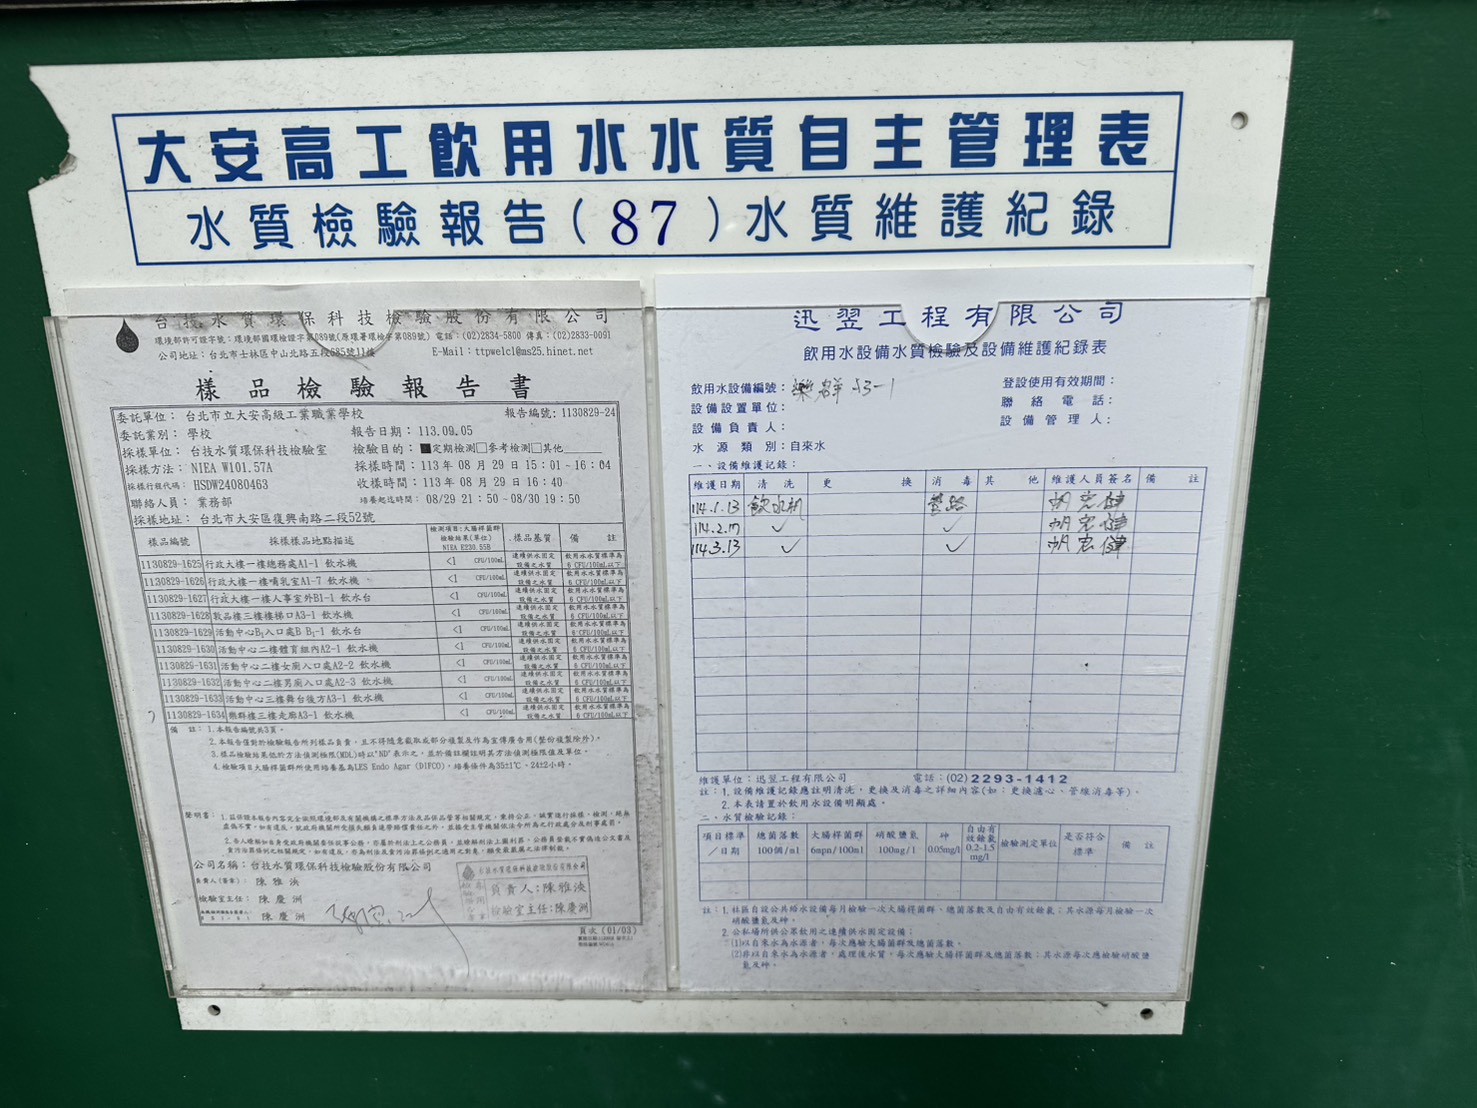 大安高工飲用水水質自主管理表
水質檢驗報告(87)水質維護紀錄
台技水質環保科技檢驗股份有限公司
環境部許可證字號：環境部國環檢證字第089號(原環署環檢字第089號) 電話：(02)2834-5800 傳真：(02)2833-0091
公司地址：台北市士林區中山北路五段685號11樓 E-Mail：ttpwelcl@ms25.hinet.net
樣品檢驗報告書
委託單位：台北市立大安高級工業職業學校 報告編號：1130829-24
委託業別：學校 報告日期：113.09.05
採樣單位：台技水質環保科技檢驗室 檢驗目的：■定期檢測□參考檢測□其他
採樣方法：NIEA W101.57A 採樣時間：113年08月29日15：01~16：04
採樣行程代碼：HSDW24080463 收樣時間：113年08月29日16：40
聯絡人員：業務部 培養起迄時間：08/29 21：50~08/30 19：50
採樣地址：台北市大安區復興南路二段52號
樣品編號 採樣樣品地點描述 檢測項目：大腸桿菌群 檢驗結果(單位) NIEA E230.55B 樣品基質 備註
1130829-1625 行政大樓一樓總務處A1-1 飲水機 <1 CFU/100mL 連續供水固定設備之水質 飲用水水質標準為6 CFU/100mL以下
1130829-1626 行政大樓一樓哺乳室A1-7 飲水機 <1 CFU/100mL 連續供水固定設備之水質 飲用水水質標準為6 CFU/100mL以下
1130829-1627 行政大樓一樓人事室外B1-1 飲水台 <1 CFU/100mL 連續供水固定設備之水質 飲用水水質標準為6 CFU/100mL以下
1130829-1628 敦品樓三樓樓梯口A3-1 飲水機 <1 CFU/100mL 連續供水固定設備之水質 飲用水水質標準為6 CFU/100mL以下
1130829-1629 活動中心B1入口處B B1-1 飲水台 <1 CFU/100mL 連續供水固定設備之水質 飲用水水質標準為6 CFU/100mL以下
1130829-1630 活動中心二樓體育組內A2-1 飲水機 <1 CFU/100mL 連續供水固定設備之水質 飲用水水質標準為6 CFU/100mL以下
1130829-1631 活動中心二樓女廁入口處A2-2 飲水機 <1 CFU/100mL 連續供水固定設備之水質 飲用水水質標準為6 CFU/100mL以下
1130829-1632 活動中心二樓男廁入口處A2-3 飲水機 <1 CFU/100mL 連續供水固定設備之水質 飲用水水質標準為6 CFU/100mL以下
1130829-1633 活動中心三樓舞台後方A3-1 飲水機 <1 CFU/100mL 連續供水固定設備之水質 飲用水水質標準為6 CFU/100mL以下
1130829-1634 樂群樓三樓走廊A3-1 飲水機 <1 CFU/100mL 連續供水固定設備之水質 飲用水水質標準為6 CFU/100mL以下
備註：1.本報告編號共3頁。
2.本報告僅對於檢驗報告所列樣品負責，且不得隨意截取或部分複製及作為宣傳廣告用(整份複製除外)。
3.樣品檢驗結果低於方法偵測極限(MDL)時以"ND"表示之，並於備註欄註明其方法偵測極限值及單位。
4.檢驗項目大腸桿菌群所使用培養基為LES Endo Agar (DIFCO)，培養條件為35±1℃、24±2小時。
聲明書：
公司名稱：台技水質環保科技檢驗股份有限公司
負責人(簽章)：陳雅
檢驗室主任：陳慶洲
陳慶洲
台技水質環保科技檢驗股份有限公司
負責人：陳雅
檢驗室主任：陳慶洲
頁次(01/03)
迅翌工程有限公司
飲用水設備水質檢驗及設備維護紀錄表
飲用水設備編號：樂群 A3-1 登設使用有效期間：
設備設置單位： 聯絡電話：
設備負責人： 設備管理人：
水源類別：自來水
一、設備維護記錄：
維護日期 清洗 更換 消毒 其他 維護人員簽名 備註
114.1.13 飲水机 管路 胡宏健
114.2.17 ✓ ✓ 胡宏健
114.3.13 ✓ ✓ 胡宏健
維護單位：迅翌工程有限公司 電話：(02)2293-1412
註：1.設備維護記錄應註明清洗、更換及消毒之詳細內容(如：更換濾心、管線消毒等)。
2.本表請置於飲用水設備明顯處。
二、水質檢驗記錄：
項目標準/日期 總菌落數100個/ml 大腸桿菌群6mpn/100ml 硝酸鹽氮10mg/l 砷0.05mg/l 自由有效餘氯0.2-1.5mg/l 檢驗測定單位 是否符合標準 備註
註：1.社區自設公共給水設備每月檢驗一次大腸桿菌群、總菌落數及自由有效餘氯；其水源每月檢驗一次
硝酸鹽氮及砷。
2.公私場所供公眾飲用之連續供水固定設備：
(1)以自來水為水源者，每次應驗大腸菌群及總菌落數。
(2)非以自來水為水源者，處理後水質，每次應驗大腸桿菌群及總菌落數；其水源每次應檢驗硝酸鹽
氮及砷。